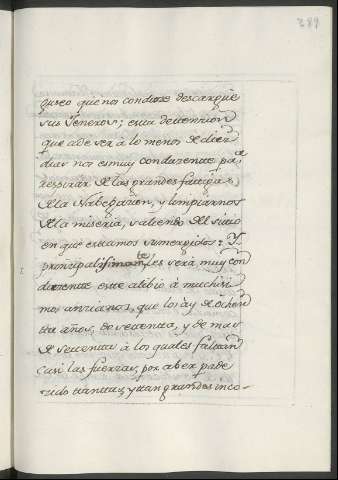 289
quseo que nos conduxe descargue
sus Generos; esta detencion
que a de ser à lo menos de diez
dias nos es muy conduzente pa.ª
respirar de las grandes fatigas,
de la Nabegazion, y limpiarnos
de la miseria, saliendo del sitio
en que estamos sumergidos: Y
prinzipalisimamte, les será muy con
duzente este alibio à muchisi
mos anzianos, que los ay de ochen
tta años, de settenta, y de mas
de settenta à los quales faltan
casi las fuerzas, por aber pade
zido tanttas, y ttan grandes inco-